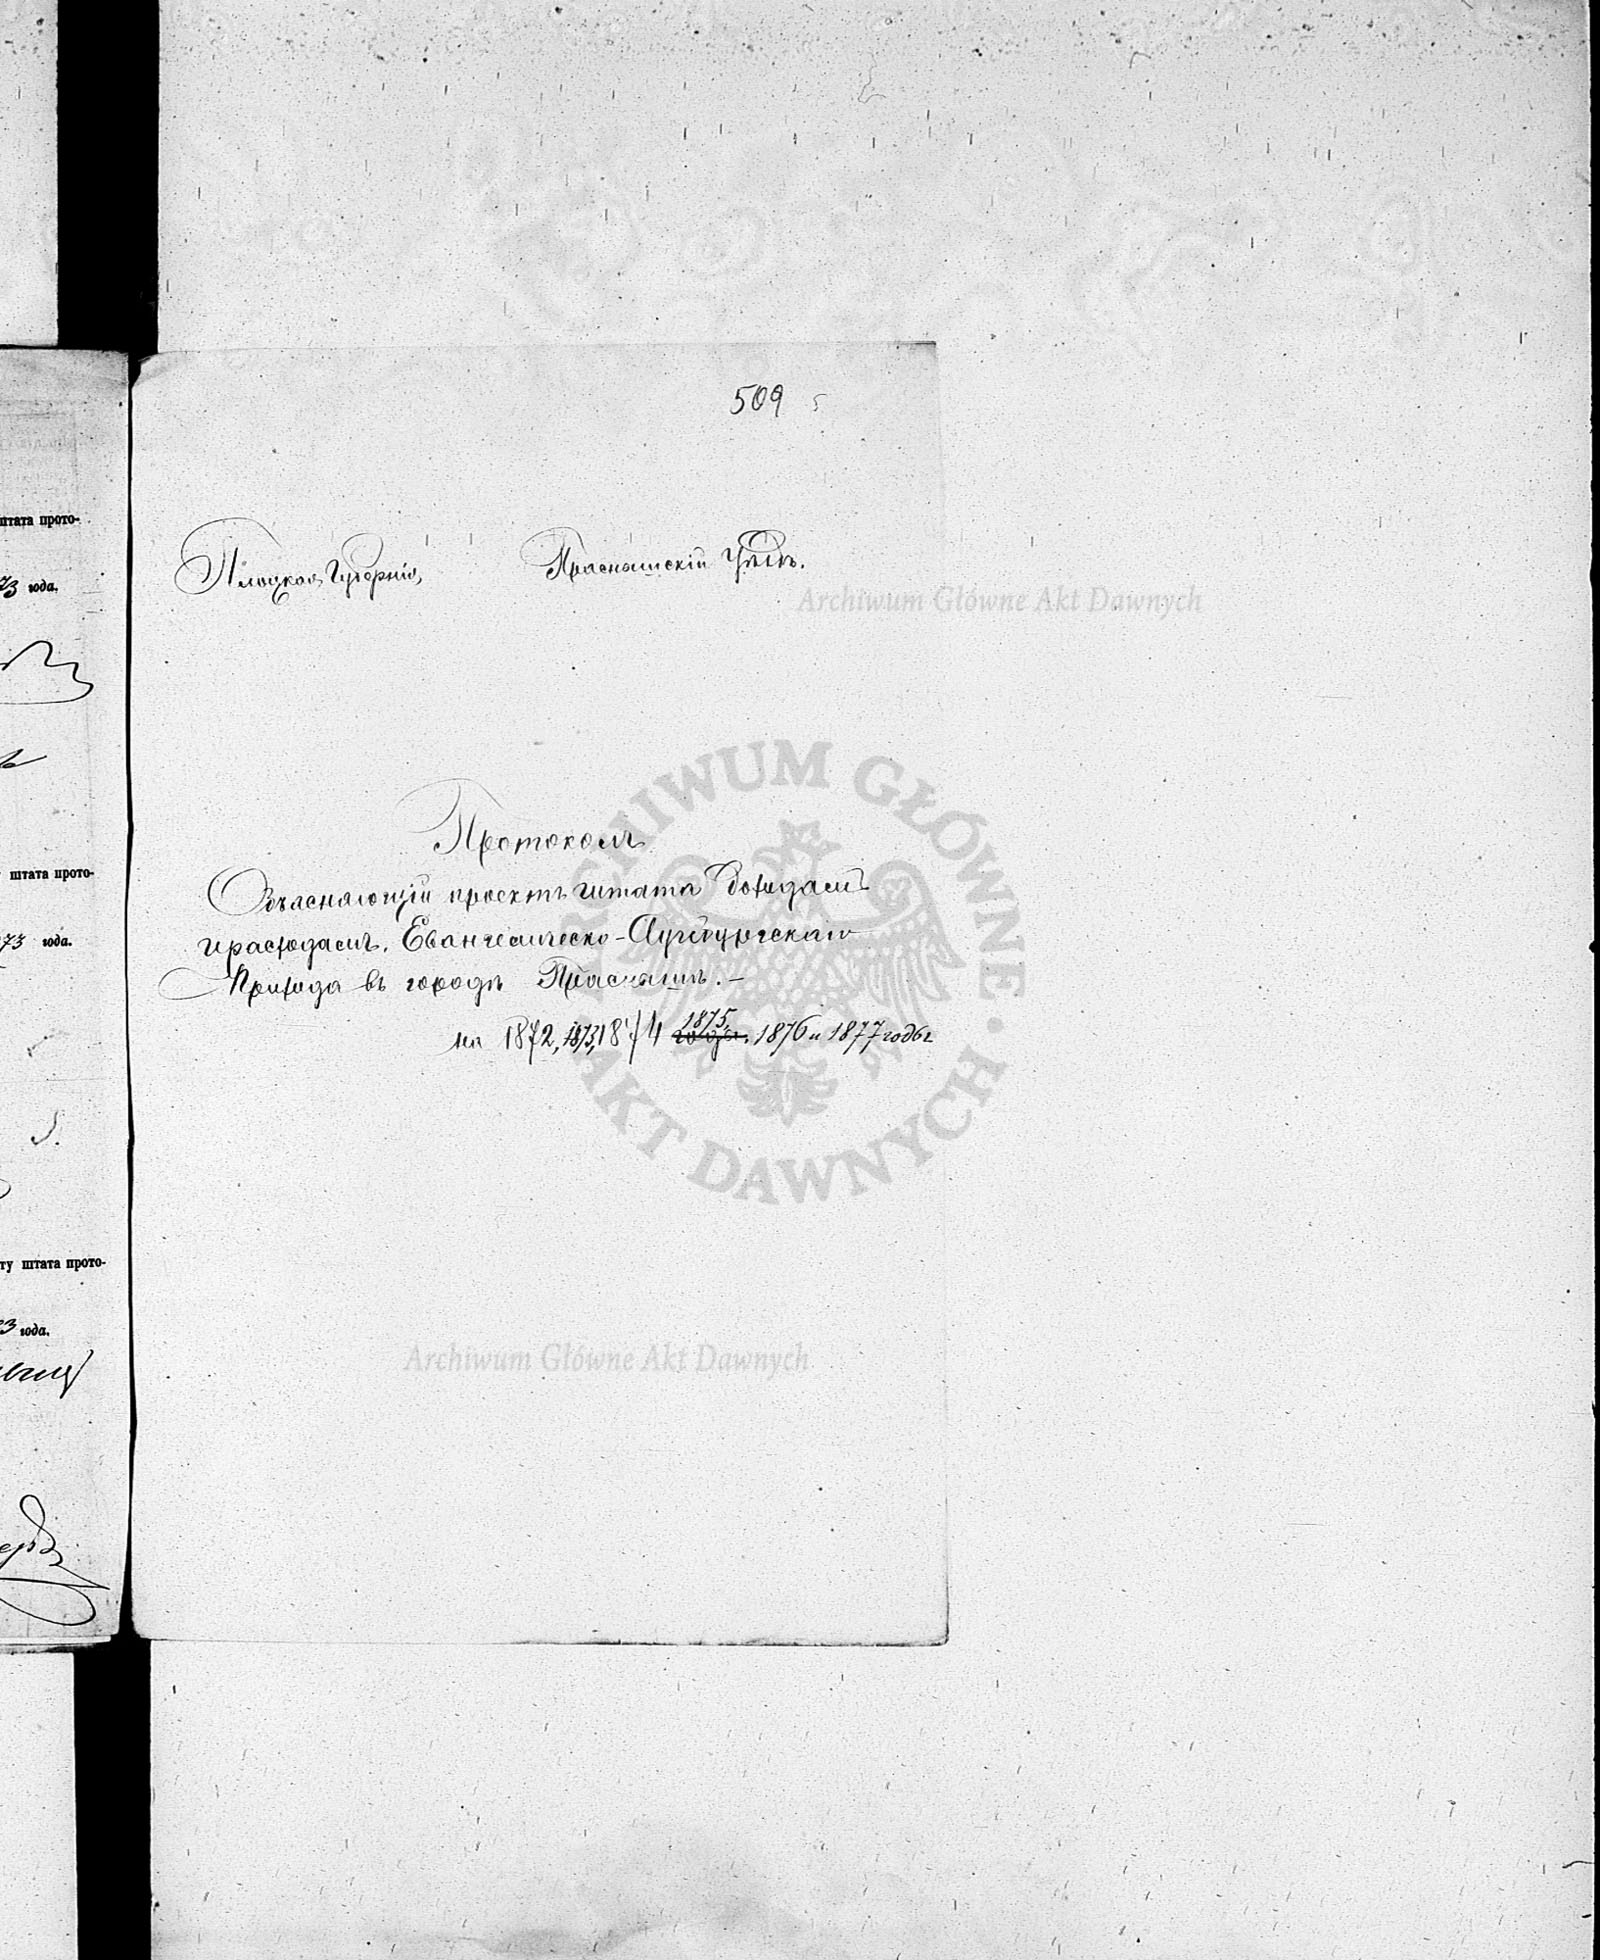 штата прото-
73 года.
штата прото-
73 года.
ту штата прото-
3 года.
509
Плоцкая Губернія,
Праснышскій Уѣздъ.
Archiwum Główne Akt Dawnych
Протоколъ
Объясняющій проектъ штата доходамъ
и расходамъ. Евангелическо-Аугсбургскаго
Прихода въ городѣ Праснышѣ.-
на 1872, 1873, 1874 годы. 1875, 1876 и 1877 годы
ARCHIWUM GŁÓWNE AKT DAWNYCH
Archiwum Główne Akt Dawnych